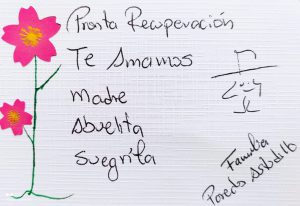 Pronta Recuperación
Te Amamos
Madre
Abuelita
Suegrita
Familia
Paredes Astudillo